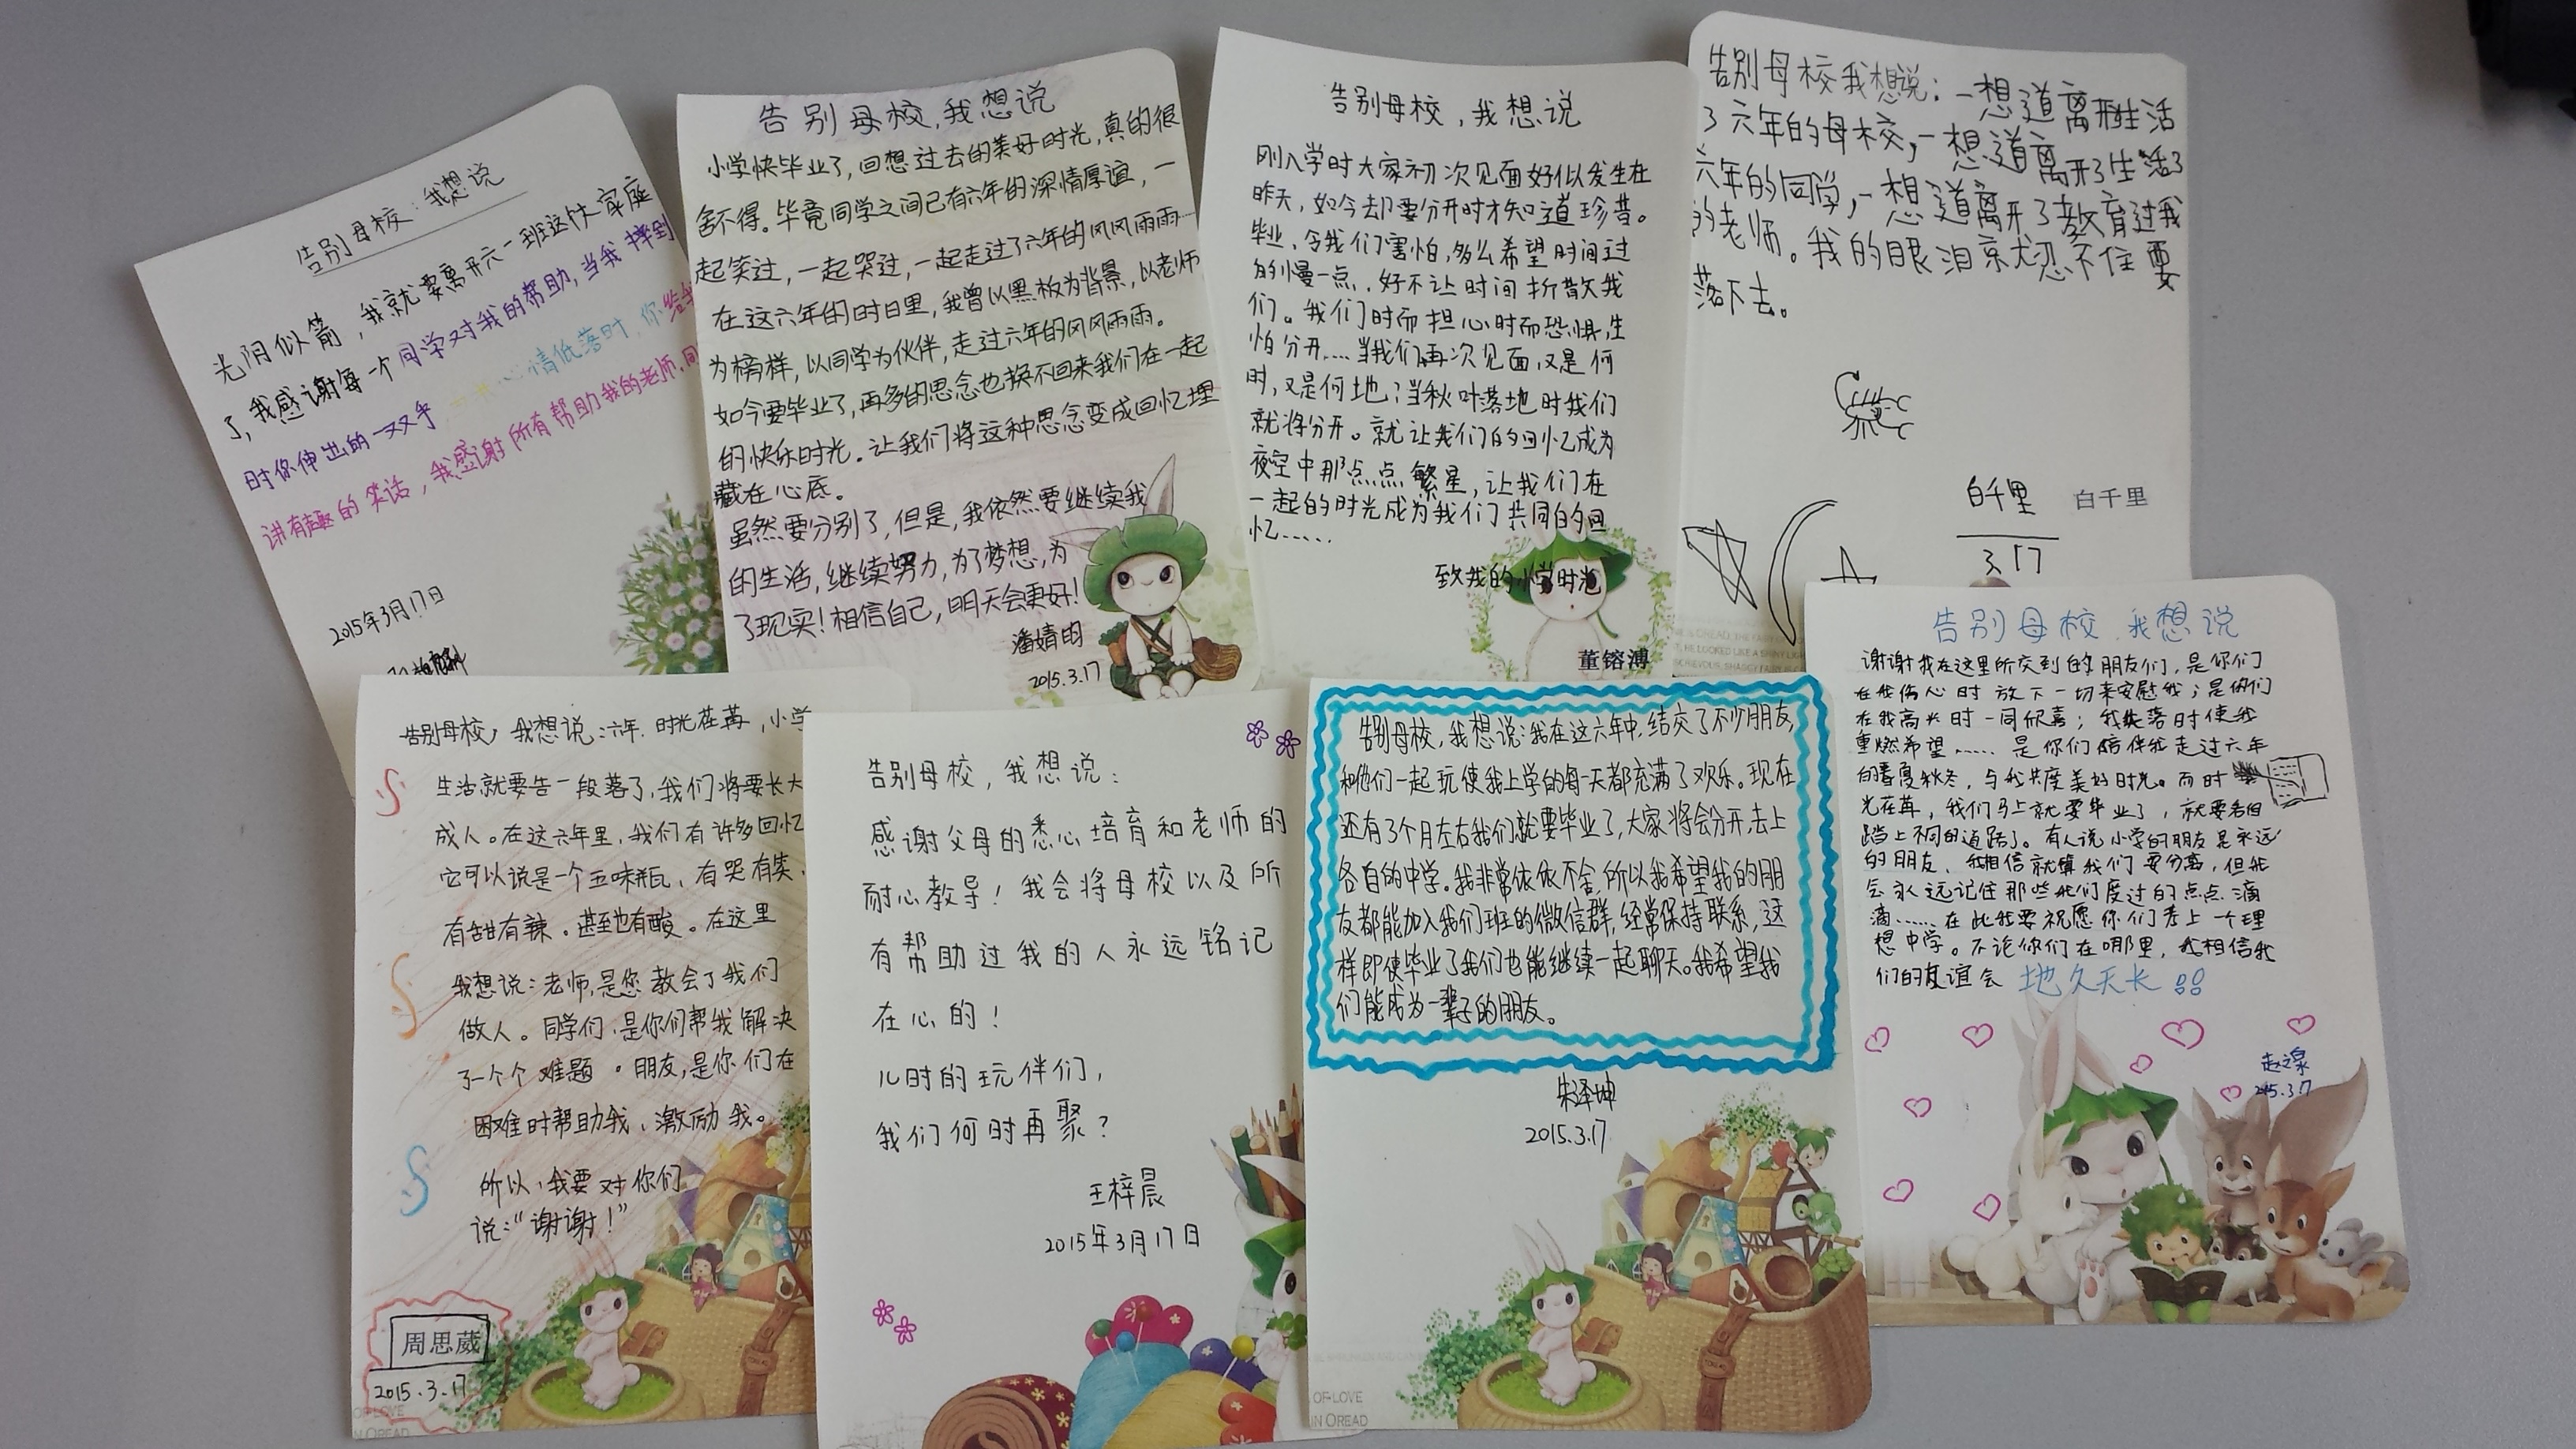 告别母校：我想说
光阴似箭，我就要离开六一班这个大家庭
了，我感谢每一个同学对我的帮助，当我摔到
时你伸出的一双手 心情低落时，你
讲有趣的笑话，我感谢所有帮助我的老师，同
2015年3月17日
告别母校，我想说
小学快毕业了，回想过去的美好时光，真的很
舍不得。毕竟同学之间已有六年的深情厚谊，一
起笑过，一起哭过，一起走过了六年的风风雨雨……
在这六年的时日里，我曾以黑板为背景，以老师
为榜样，以同学为伙伴，走过六年的风风雨雨。
如今要毕业了，再多的思念也换不回来我们在一起
的快乐时光。让我们将这种思念变成回忆埋
藏在心底。
虽然要分别了，但是，我依然要继续我
的生活，继续努力，为了梦想，为
了现实！相信自己，明天会更好！
潘婧昀
2015.3.17
告别母校，我想说
刚入学时大家初次见面好似发生在
昨天，如今却要分开时才知道珍昔。
毕业，令我们害怕，多么希望时间过
的慢一点，好不让时间折散我
们。我们时而担心时而恐惧，生
怕分开……当我们再次见面，又是何
时，又是何地；当秋叶落地时我们
就将分开。就让我们的回忆成为
夜空中那点点繁星，让我们在
一起的时光成为我们共同的回
忆……
致我的小学时光
董镕溥
告别母校我想说：一想道离开生活
了六年的母校，一想道离开了生活了
六年的同学，一想道离开了教育过我
的老师。我的眼泪就忍不住要
落下去。
白千里
白千里
3.17
告别母校，我想说：六年，时光荏苒，小学
生活就要告一段落了，我们将要长大
成人。在这六年里，我们有许多回忆
它可以说是一个五味瓶，有哭有笑，
有甜有辣。甚至也有酸。在这里
我想说：老师，是您教会了我们
做人。同学们，是你们帮我解决
了一个个难题。朋友，是你们在
困难时帮助我、激励我。
所以，我要对你们
说：“谢谢！”
周思葳
2015.3.17
OF LOVE
IN OREAD
告别母校，我想说：
感谢父母的悉心培育和老师的
耐心教导！我会将母校以及所
有帮助过我的人永远铭记
在心的！
儿时的玩伴们，
我们何时再聚？
王梓晨
2015年3月17日
告别母校，我想说：我在这六年中，结交了不少朋友，
和他们一起玩使我上学的每一天都充满了欢乐。现在
还有3个月左右我们就要毕业了，大家将会分开，去上
各自的中学。我非常依依不舍，所以我希望我的朋
友都能加入我们班的微信群，经常保持联系，这
样即使毕业了我们也能继续一起聊天。我希望我
们能成为一辈子的朋友。
朱泽坤
2015.3.17
OF LOVE
IN OREAD
告别母校，我想说
谢谢我在这里所交到的朋友们，是你们
在我伤心时放下一切来安慰我；是你们
在我高兴时一同欣喜；我失落时使我
重燃希望……是你们陪伴我走过六年
的春夏秋冬，与我共度美好时光。而时
光荏苒，我们马上就要毕业了，就要各自
踏上不同的道路了。有人说小学的朋友是永远
的朋友，我相信就算我们要分离，但我
会永远记住那些我们度过的点点滴
滴……在此我要祝愿你们考上一个理
想中学。不论你们在哪里，我相信我
们的友谊会地久天长！！
赵之泉
2015.3.17